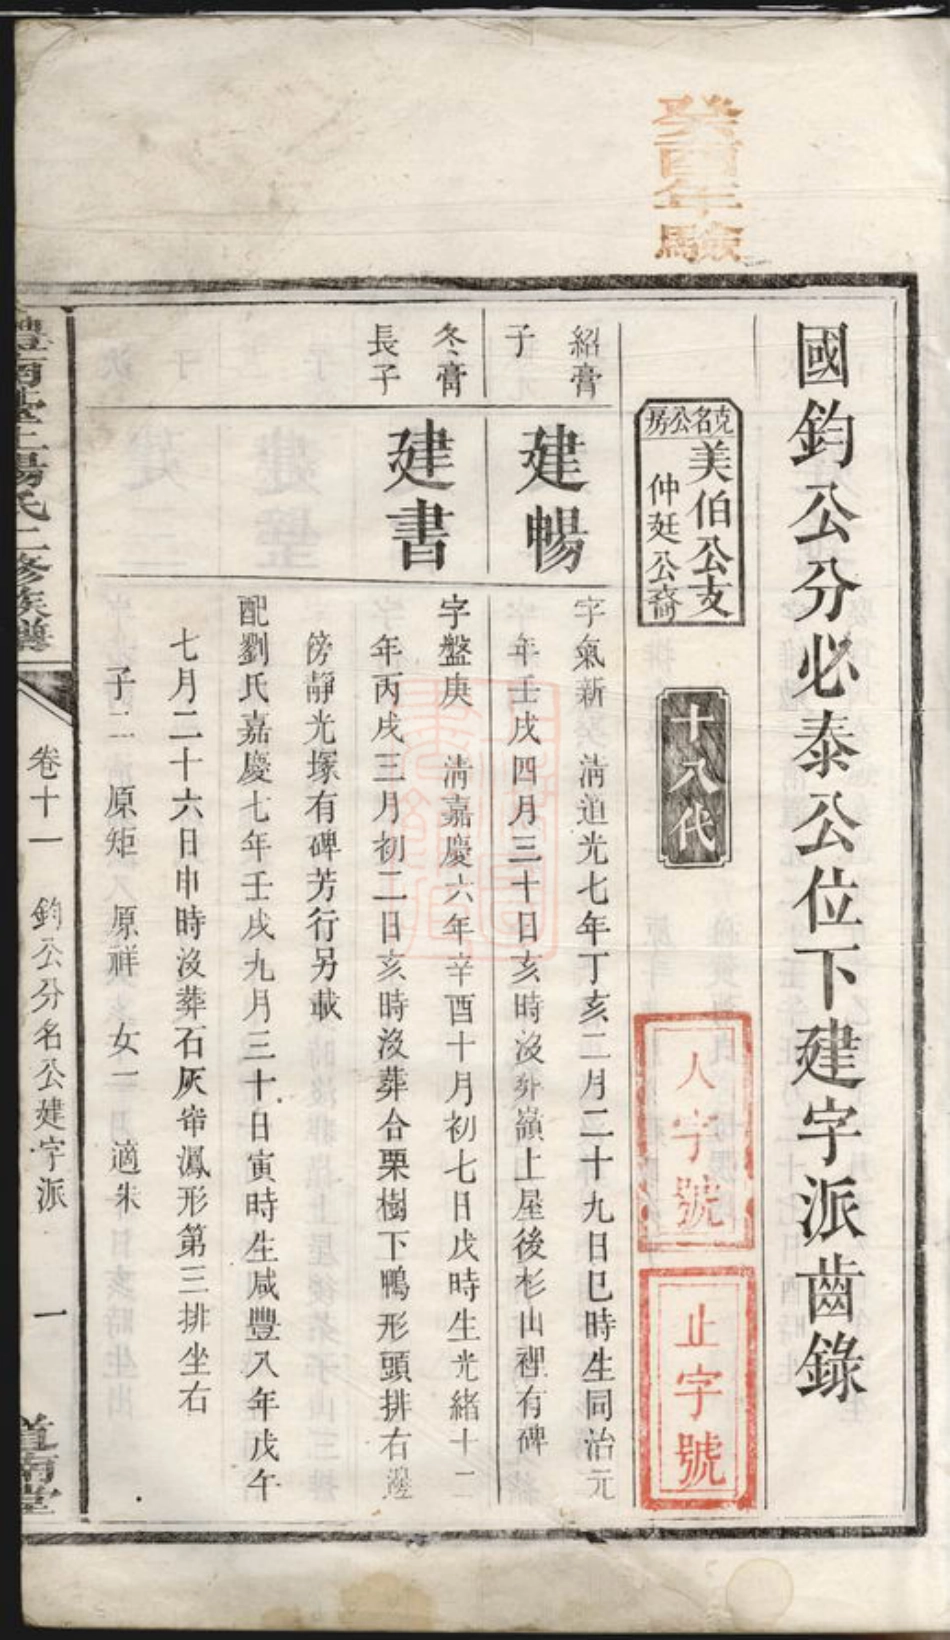 癸酉年驗
國鈞公分必泰公位下建字派齒錄
克名公房
美伯公支
仲廷公裔
十八代
人字號
止字號
紹膏
子
建暢
字氣新 清道光七年丁亥二月二十九日巳時生同治元
年壬戌四月三十日亥時沒葬嶺上屋後杉山裡有碑
冬膏
長子
建書
字盤庚 清嘉慶六年辛酉十月初七日戊時生光緒十二
年丙戌三月初二日亥時沒葬合栗樹下鴨形頭排右邊
傍靜光塚有碑芳行另載
配劉氏嘉慶七年壬戌九月三十日寅時生咸豐八年戊午
七月二十六日申時沒葬石灰帘鳳形第三排坐右
子二 原矩 原祥 女一 適朱
楊氏二修族譜
卷十一 鈞公分名公建字派 一
道南堂